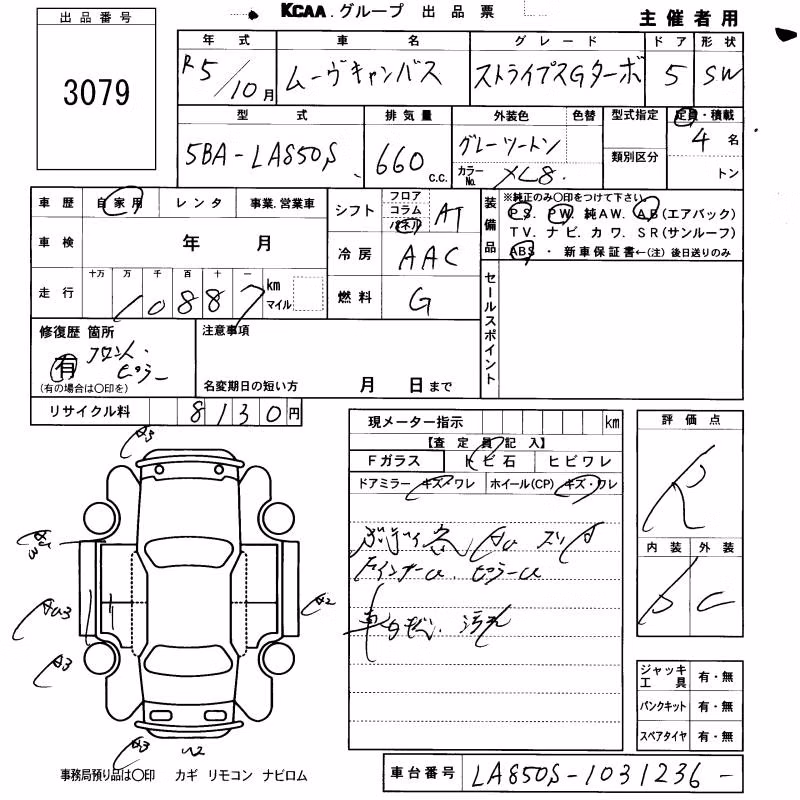 KCAA. グループ 出品票
主催者用
出品番号
3079
年式 車名 グレード ドア 形状
R5/10月 ムーヴキャンバス ストライプスGターボ 5 SW
型式 排気量 外装色 色替 型式指定 定員・積載
5BA-LA850S 660 C.C. グレーツートン 4名
カラーNo. XL8 類別区分 トン
車歴 自家用 レンタ 事業.営業車
車検 年 月
走行 十万 万 千 百 十 一 km マイル
10887
シフト フロア コラム パネル AT
冷房 AAC
燃料 G
装備品 ※純正のみ〇印をつけて下さい
PS. PW. 純AW. AB(エアバック)
TV. ナビ. カワ. SR(サンルーフ)
ABS ・ 新車保証書←(注) 後日送りのみ
セールスポイント
修復歴 箇所
有 フロント. ピラー
(有の場合は〇印を)
注意事項
名変期日の短い方 月 日まで
リサイクル料 8130円
現メーター指示 km
【査定員記入】
Fガラス トビ石 ヒビワレ
ドアミラー キズ・ワレ ホイール(CP) キズ・ワレ
ピラーU
汚れ
評価点
R
内装 外装
D C
A3
A3
A2
A3
A3
W2
ジャッキ工具 有・無
パンクキット 有・無
スペアタイヤ 有・無
事務局預り品は〇印 カギ リモコン ナビロム
車台番号 LA850S-1031236-